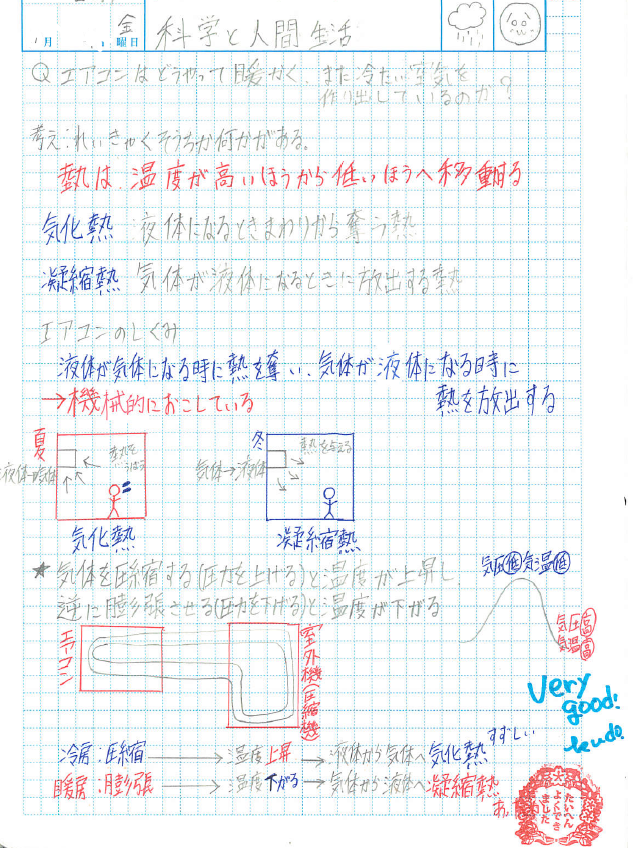 金
月 曜日 科学と人間生活
Q エアコンはどうやって暖かく、また冷たい空気を
作り出しているのか?
考え:れいきゃくそうちか何かがある。
熱は、温度が高いほうから低いほうへ移動する
気化熱 液体になるときまわりから奪う熱
凝縮熱 気体が液体になるときに放出する熱
エアコンのしくみ
液体が気体になる時に熱を奪い、気体が液体になる時に
熱を放出する
→機械的におこしている
夏
熱をうばう
液体→気体
気化熱
冬
熱を与える
気体→液体
凝縮熱
★気体を圧縮する(圧力を上げる)と温度が上昇し、
逆に膨張させる(圧力を下げる)と温度が下がる
気圧低 気温低
気圧高
気温高
エアコン
室外機(圧縮機)
Very good!
kudo
冷房:圧縮→温度上昇→液体から気体へ気化熱 すずしい
暖房:膨張→温度下がる→気体から液体へ凝縮熱
たいへん
よくでき
ました